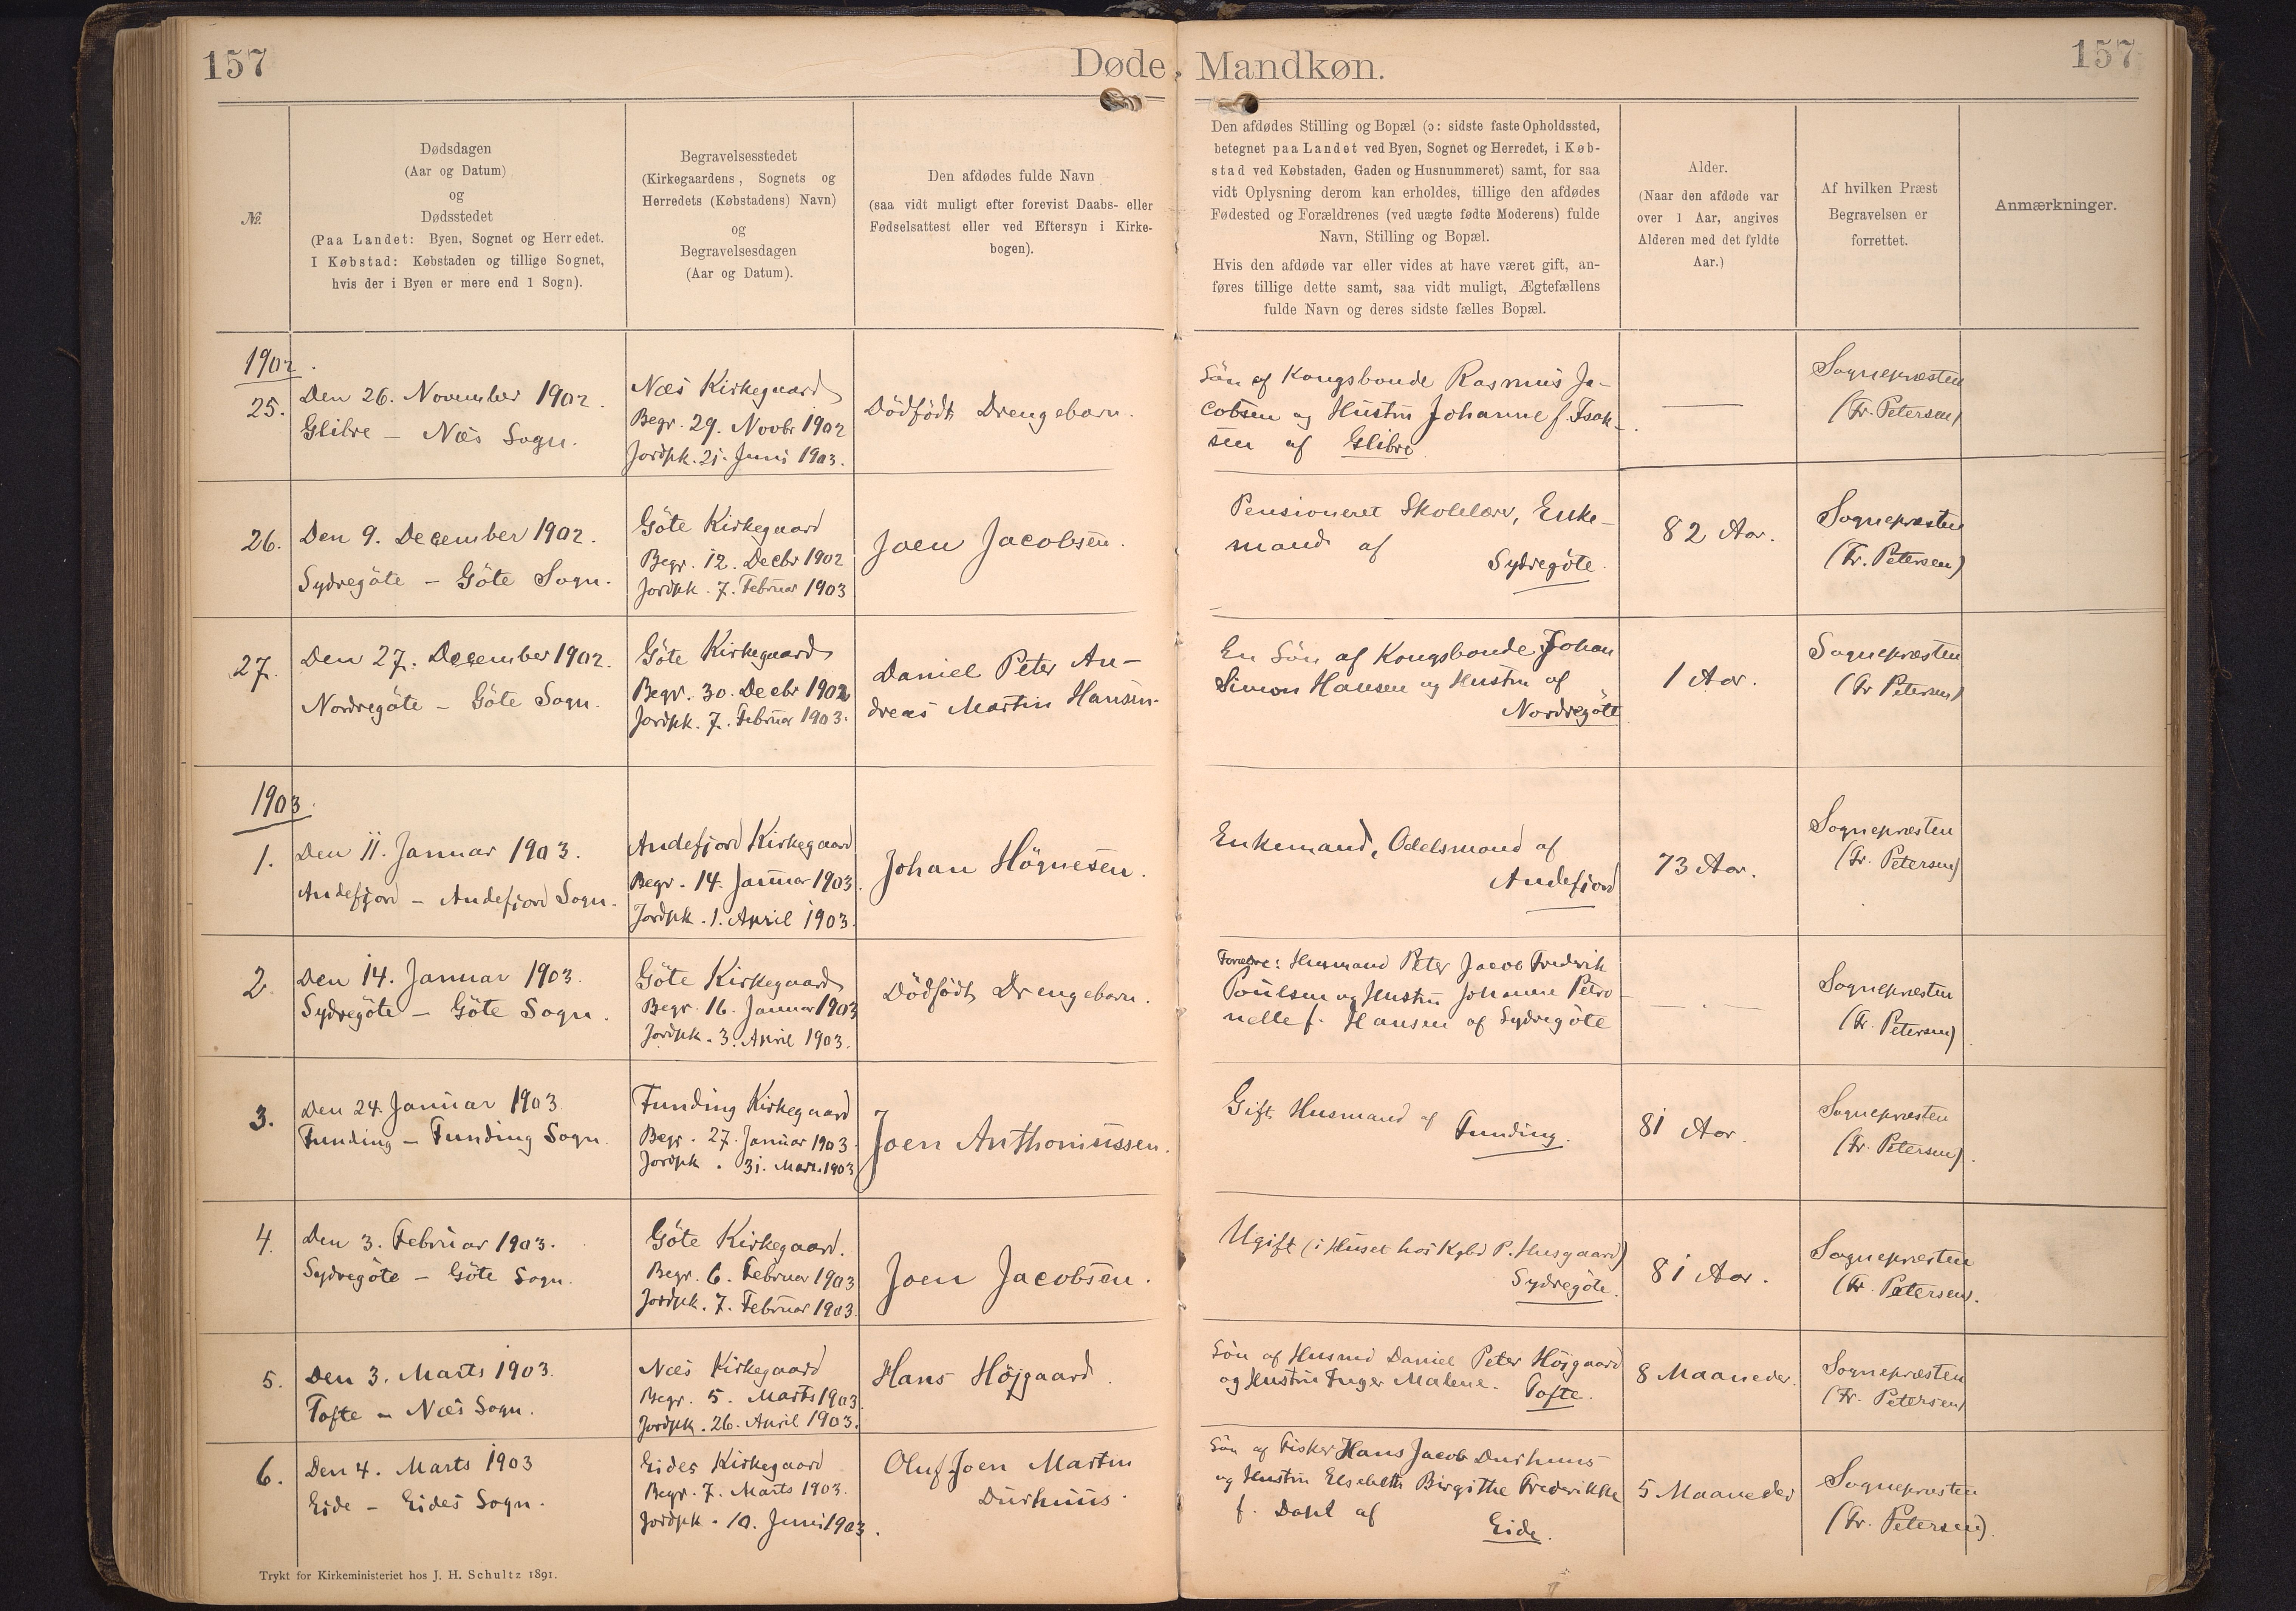 157
Døde, Mandkøn.
157
№.
Dødsdagen
(Aar og Datum)
og
Dødsstedet
(Paa Landet: Byen, Sognet og Herredet.
I Købstad: Købstaden og tillige Sognet,
hvis der i Byen er mere end 1 Sogn).
Begravelsesstedet
(Kirkegaardens, Sognets og
Herredets (Købstadens) Navn)
og
Begravelsesdagen
(Aar og Datum).
Den afdødes fulde Navn
(saa vidt muligt efter forevist Daabs- eller
Fødselsattest eller ved Eftersyn i Kirke-
bogen).
Den afdødes Stilling og Bopæl (ɔ: sidste faste Opholdssted,
betegnet paa Landet ved Byen, Sognet og Herredet, i Køb-
stad ved Købstaden, Gaden og Husnummeret) samt, for saa
vidt Oplysning derom kan erholdes, tillige den afdødes
Fødested og Forældrenes (ved uægte fødte Moderens) fulde
Navn, Stilling og Bopæl.
Hvis den afdøde var eller vides at have været gift, an-
føres tillige dette samt, saa vidt muligt, Ægtefællens
fulde Navn og deres sidste fælles Bopæl.
Alder.
(Naar den afdøde var
over 1 Aar, angives
Alderen med det fyldte
Aar.)
Af hvilken Præst
Begravelsen er
forrettet.
Anmærkninger.
1902.
25.
Den 26. November 1902.
Glibre – Næs Sogn.
Næs Kirkegaard
Begr. 29. Novbr 1902
Jordpk. 21. Juni 1903.
Dödfödt Drengebarn.
Sön af Kongsbonde Rasmus Ja-
cobsen og Hustru Johanne f. Isak-
sen af Glibre
—
Sognepræsten
(Fr. Petersen)
26.
Den 9. December 1902.
Sydregöte – Göte Sogn.
Göte Kirkegaard
Begr. 12. Decbr 1902
Jordpk. 7. Februar 1903
Joen Jacobsen.
Pensioneret Skolelærer, Enke-
mand af
Sydregöte.
82 Aar.
Sognepræsten
(Fr. Petersen)
27.
Den 27. December 1902.
Nordregöte – Göte Sogn.
Göte Kirkegaard
Begr. 30. Decbr 1902
Jordpk. 7. Februar 1903.
Daniel Peter An-
dreas Martin Hansen.
En Sön af Kongsbonde Johan
Simon Hansen og Hustru af
Nordregöte
1 Aar.
Sognepræsten
(Fr Petersen)
1903.
1.
Den 11. Januar 1903.
Andefjord – Andefjord Sogn.
Andefjord Kirkegaard
Begr. 14. Januar 1903.
Jordpk. 1. April 1903.
Johan Högnesen.
Enkemand, Odelsmand af
Andefjord
73 Aar.
Sognepræsten
(Fr. Petersen)
2
Den 14. Januar 1903.
Sydregöte – Göte Sogn.
Göte Kirkegaard
Begr. 16. Januar 1903
Jordpk. 3. April 1903.
Dödfödt Drengebarn.
Forældre: Husmand Peter Jacob Frederik
Poulsen og Hustru Johanne Petro-
nelle f. Hansen af Sydregöte
—
Sognepræsten
(Fr. Petersen)
3.
Den 24. Januar 1903
Funding – Funding Sogn.
Funding Kirkegaard
Begr. 27. Januar 1903.
Jordpk. 31. Mart. 1903
Joen Anthoniussen.
Gift Husmand af
Funding.
81 Aar.
Sognepræsten
(Fr. Petersen).
4.
Den 3. Februar 1903.
Sydregöte – Göte Sogn.
Göte Kirkegaard.
Begr. 6. Februar 1903
Jordpk. 7. Februar 1903.
Joen Jacobsen.
Ugift (i Huset hos Kgbd P. Husgaard)
Sydregöte.
81 Aar.
Sognepræsten
(Fr. Petersen).
5.
Den 3. Marts 1903.
Tofte – Næs Sogn.
Næs Kirkegaard
Begr. 5. Marts 1903
Jordpk. 26. April 1903.
Hans Höjgaard.
Sön af Husmd Daniel Peter Höjgaard
og Hustru Inger Malene. Tofte.
8 Maaneder.
Sognepræsten
(Fr. Petersen)
6.
Den 4. Marts 1903
Eide – Eides Sogn.
Eides Kirkegaard
Begr. 7. Marts 1903.
Jordpk. 10. Juni 1903.
Oluf Joen Martin
Durhuus.
Sön af Fisker Hans Jacob Durhuus
og Hustru Elsebeth Birgithe Frederikke
f. Dahl af
Eide.
5 Maaneder
Sognepræsten
(Fr. Petersen).
Trykt for Kirkeministeriet hos J. H. Schultz 1891.